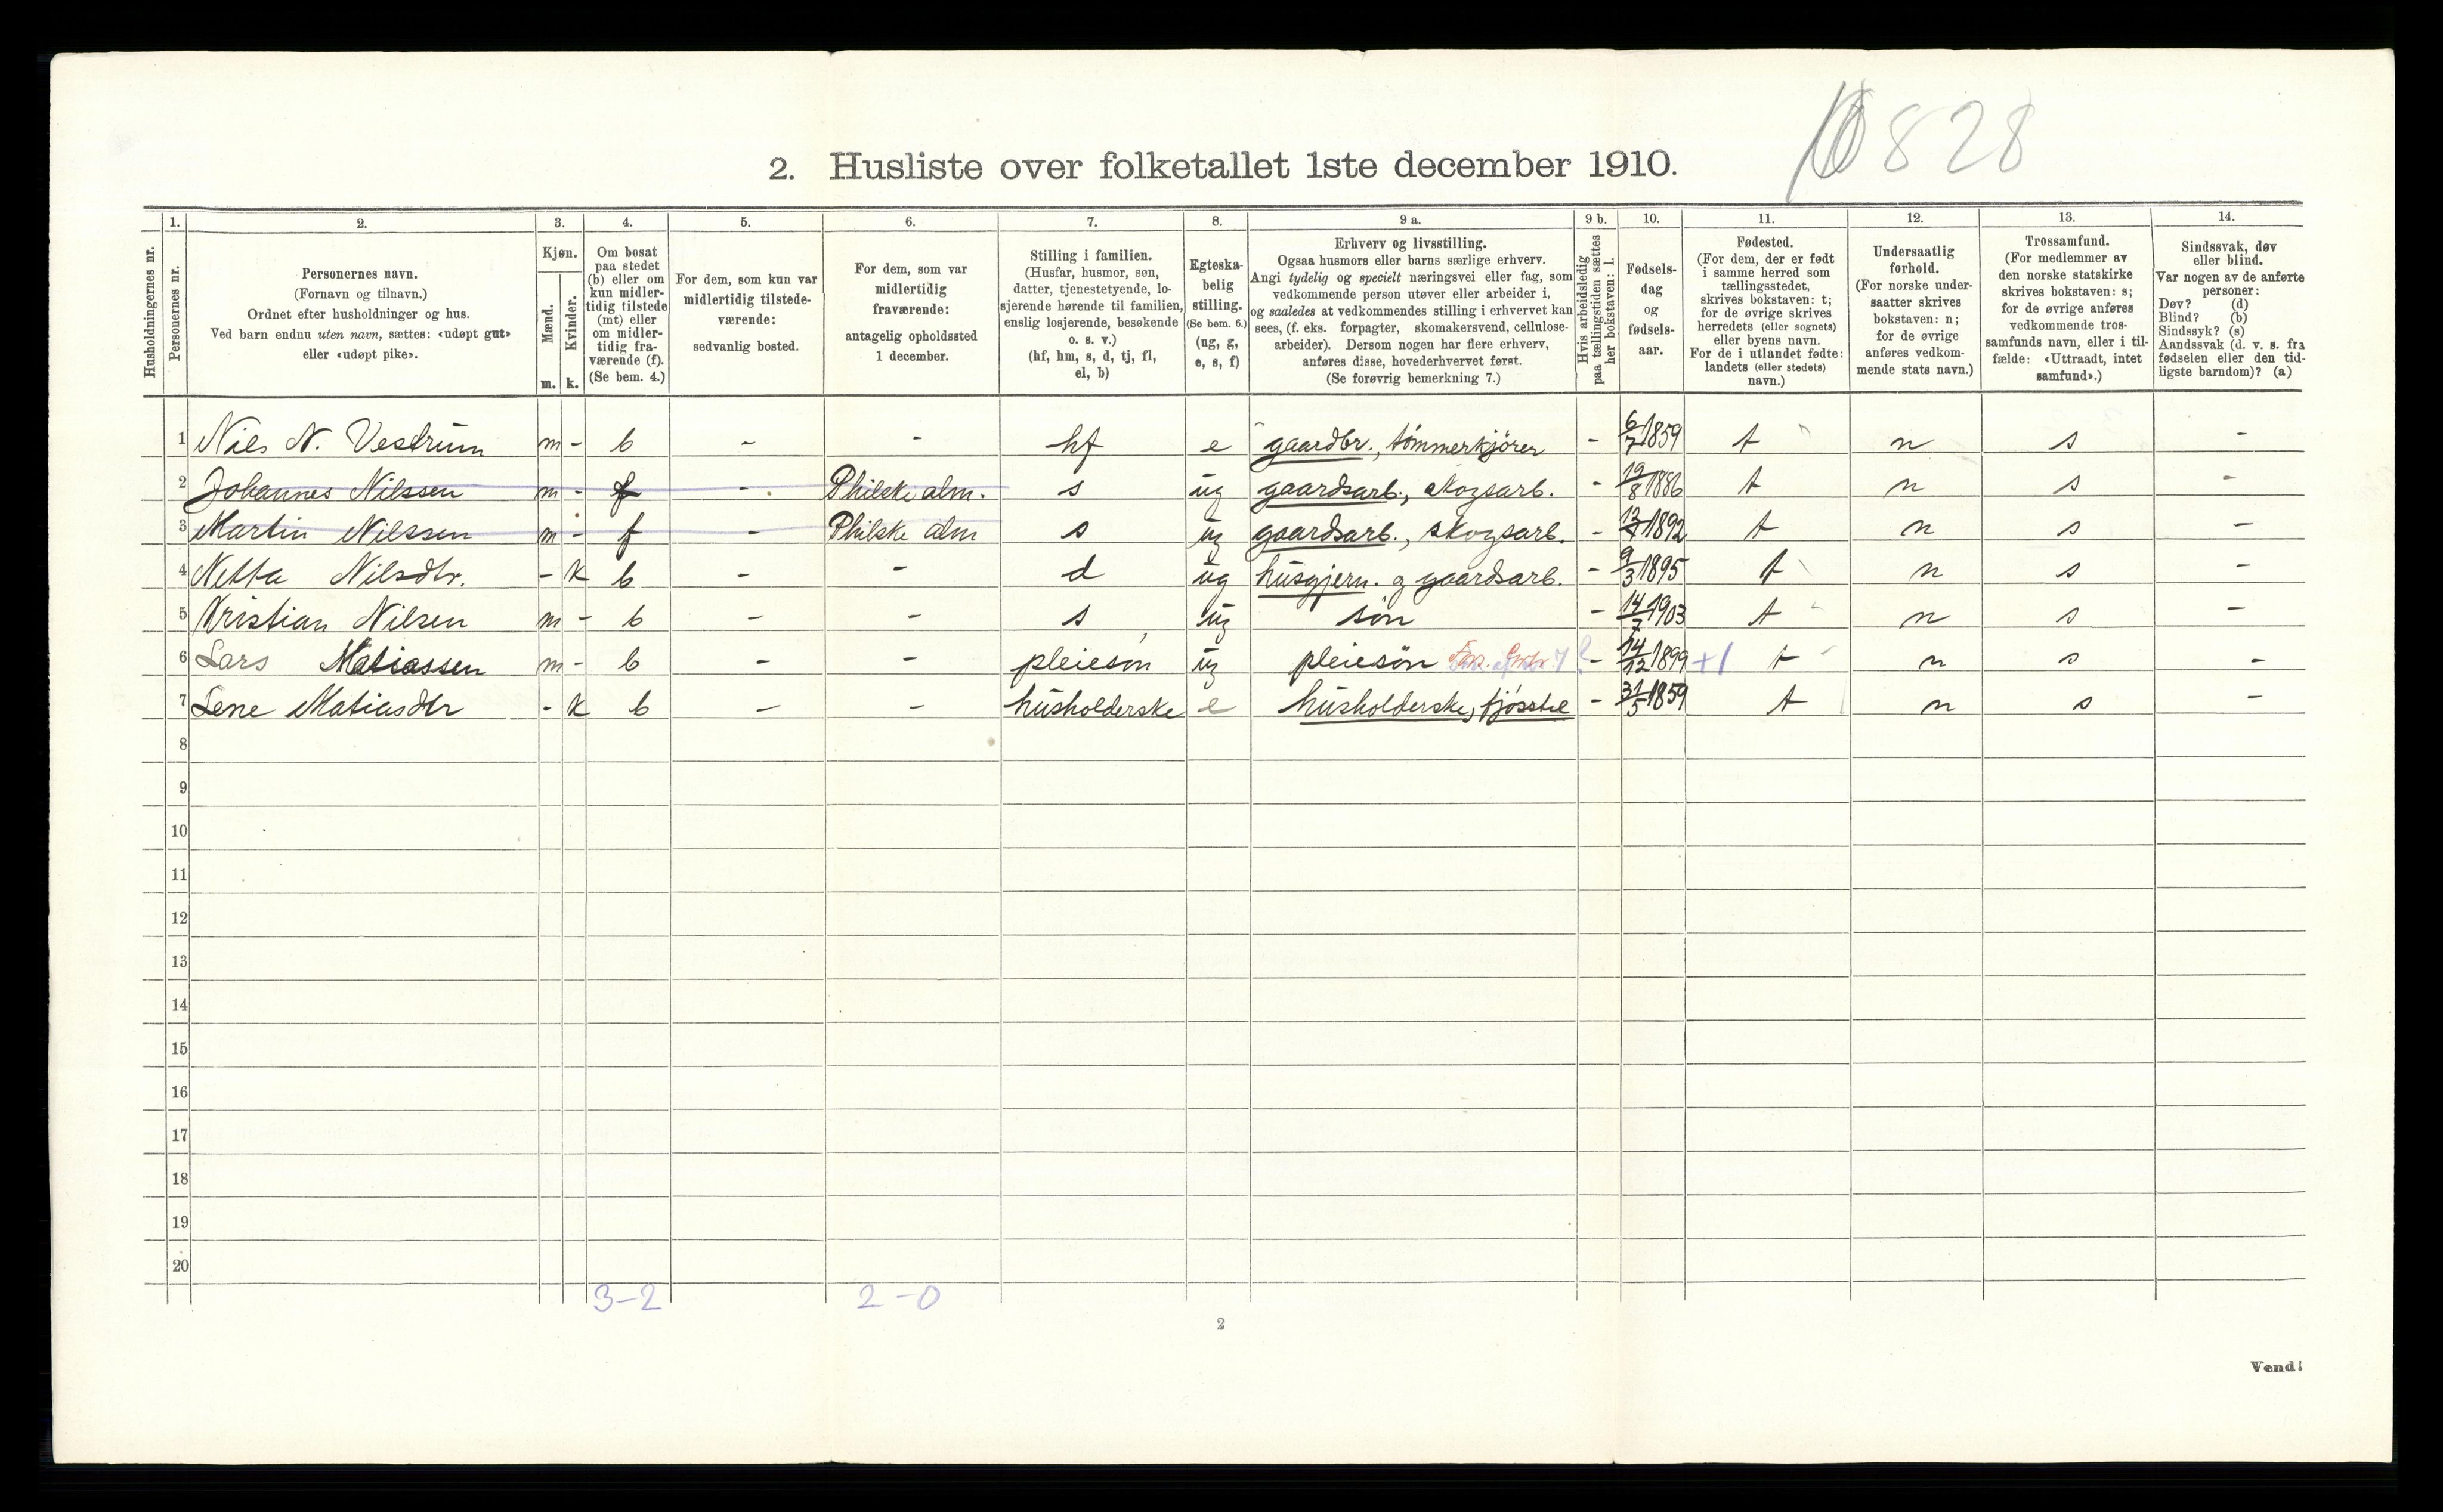 828
2. Husliste over folketallet 1ste december 1910.
Husholdningernes nr.
1.
Personernes nr.
2.
Personernes navn.
(Fornavn og tilnavn.)
Ordnet efter husholdninger og hus.
Ved barn endnu uten navn, sættes: «udøpt gut»
eller «udøpt pike».
3.
Kjøn.
Mænd.
Kvinder.
m. k.
4.
Om bosat
paa stedet
(b) eller om
kun midler-
tidig tilstede
(mt) eller
om midler-
tidig fra-
værende (f).
(Se bem. 4.)
5.
For dem, som kun var
midlertidig tilstede-
værende:
sedvanlig bosted.
6.
For dem, som var
midlertidig
fraværende:
antagelig opholdssted
1 december.
7.
Stilling i familien.
(Husfar, husmor, søn,
datter, tjenestetyende, lo-
sjerende hørende til familien,
enslig losjerende, besøkende
o. s. v.)
(hf, hm, s, d, tj, fl,
el, b)
8.
Egteska-
belig
stilling.
(Se bem. 6.)
(ug, g,
e, s, f)
9 a.
Erhverv og livsstilling.
Ogsaa husmors eller barns særlige erhverv.
Angi tydelig og specielt næringsvei eller fag, som
vedkommende person utøver eller arbeider i,
og saaledes at vedkommendes stilling i erhvervet kan
sees, (f. eks. forpagter, skomakersvend, cellulose-
arbeider). Dersom nogen har flere erhverv,
anføres disse, hovederhvervet først.
(Se forøvrig bemerkning 7.)
9 b.
Hvis arbeidsledig
paa tællingstiden sættes
her bokstaven: l.
10.
Fødsels-
dag
og
fødsels-
aar.
11.
Fødested.
(For dem, der er født
i samme herred som
tællingsstedet,
skrives bokstaven: t;
for de øvrige skrives
herredets (eller sognets)
eller byens navn.
For de i utlandet fødte:
landets (eller stedets)
navn.)
12.
Undersaatlig
forhold.
(For norske under-
saatter skrives
bokstaven: n;
for de øvrige
anføres vedkom-
mende stats navn.)
13.
Trossamfund.
(For medlemmer av
den norske statskirke
skrives bokstaven: s;
for de øvrige anføres
vedkommende tros-
samfunds navn, eller i til-
fælde: «Uttraadt, intet
samfund».)
14.
Sindssvak, døv
eller blind.
Var nogen av de anførte
personer:
Døv? (d)
Blind? (b)
Sindssyk? (s)
Aandssvak (d. v. s. fra
fødselen eller den tid-
ligste barndom)? (a)
1 Nils N. Vestrum m - b - - hf e gaardbr., tømmerkjører - 6/7 1859 t n s -
2 Johannes Nilssen m - f - Philske alm. s ug gaardsarb., skogsarb. - 19/8 1886 t n s -
3 Martin Nilssen m - f - Philske alm s ug gaardsarb., skogsarb. - 1892 t n s -
4 Netta Nilsdtr. - k b - - d ug husgjern. og gaardsarb. - 9/3 1895 t n s -
5 Kristian Nilsen m - b - - s ug søn - 14/7 1903 t n s -
6 Lars Matiassen m - b - - pleiesøn ug pleiesøn - 14/12 1899 +1 t n s -
7 Lene Matiasdtr - k b - - husholderske e husholderske, fjøsstel - 31/5 1859 t n s -
8
9
10
11
12
13
14
15
16
17
18
19
20
3-2 2-0
2
Vend!